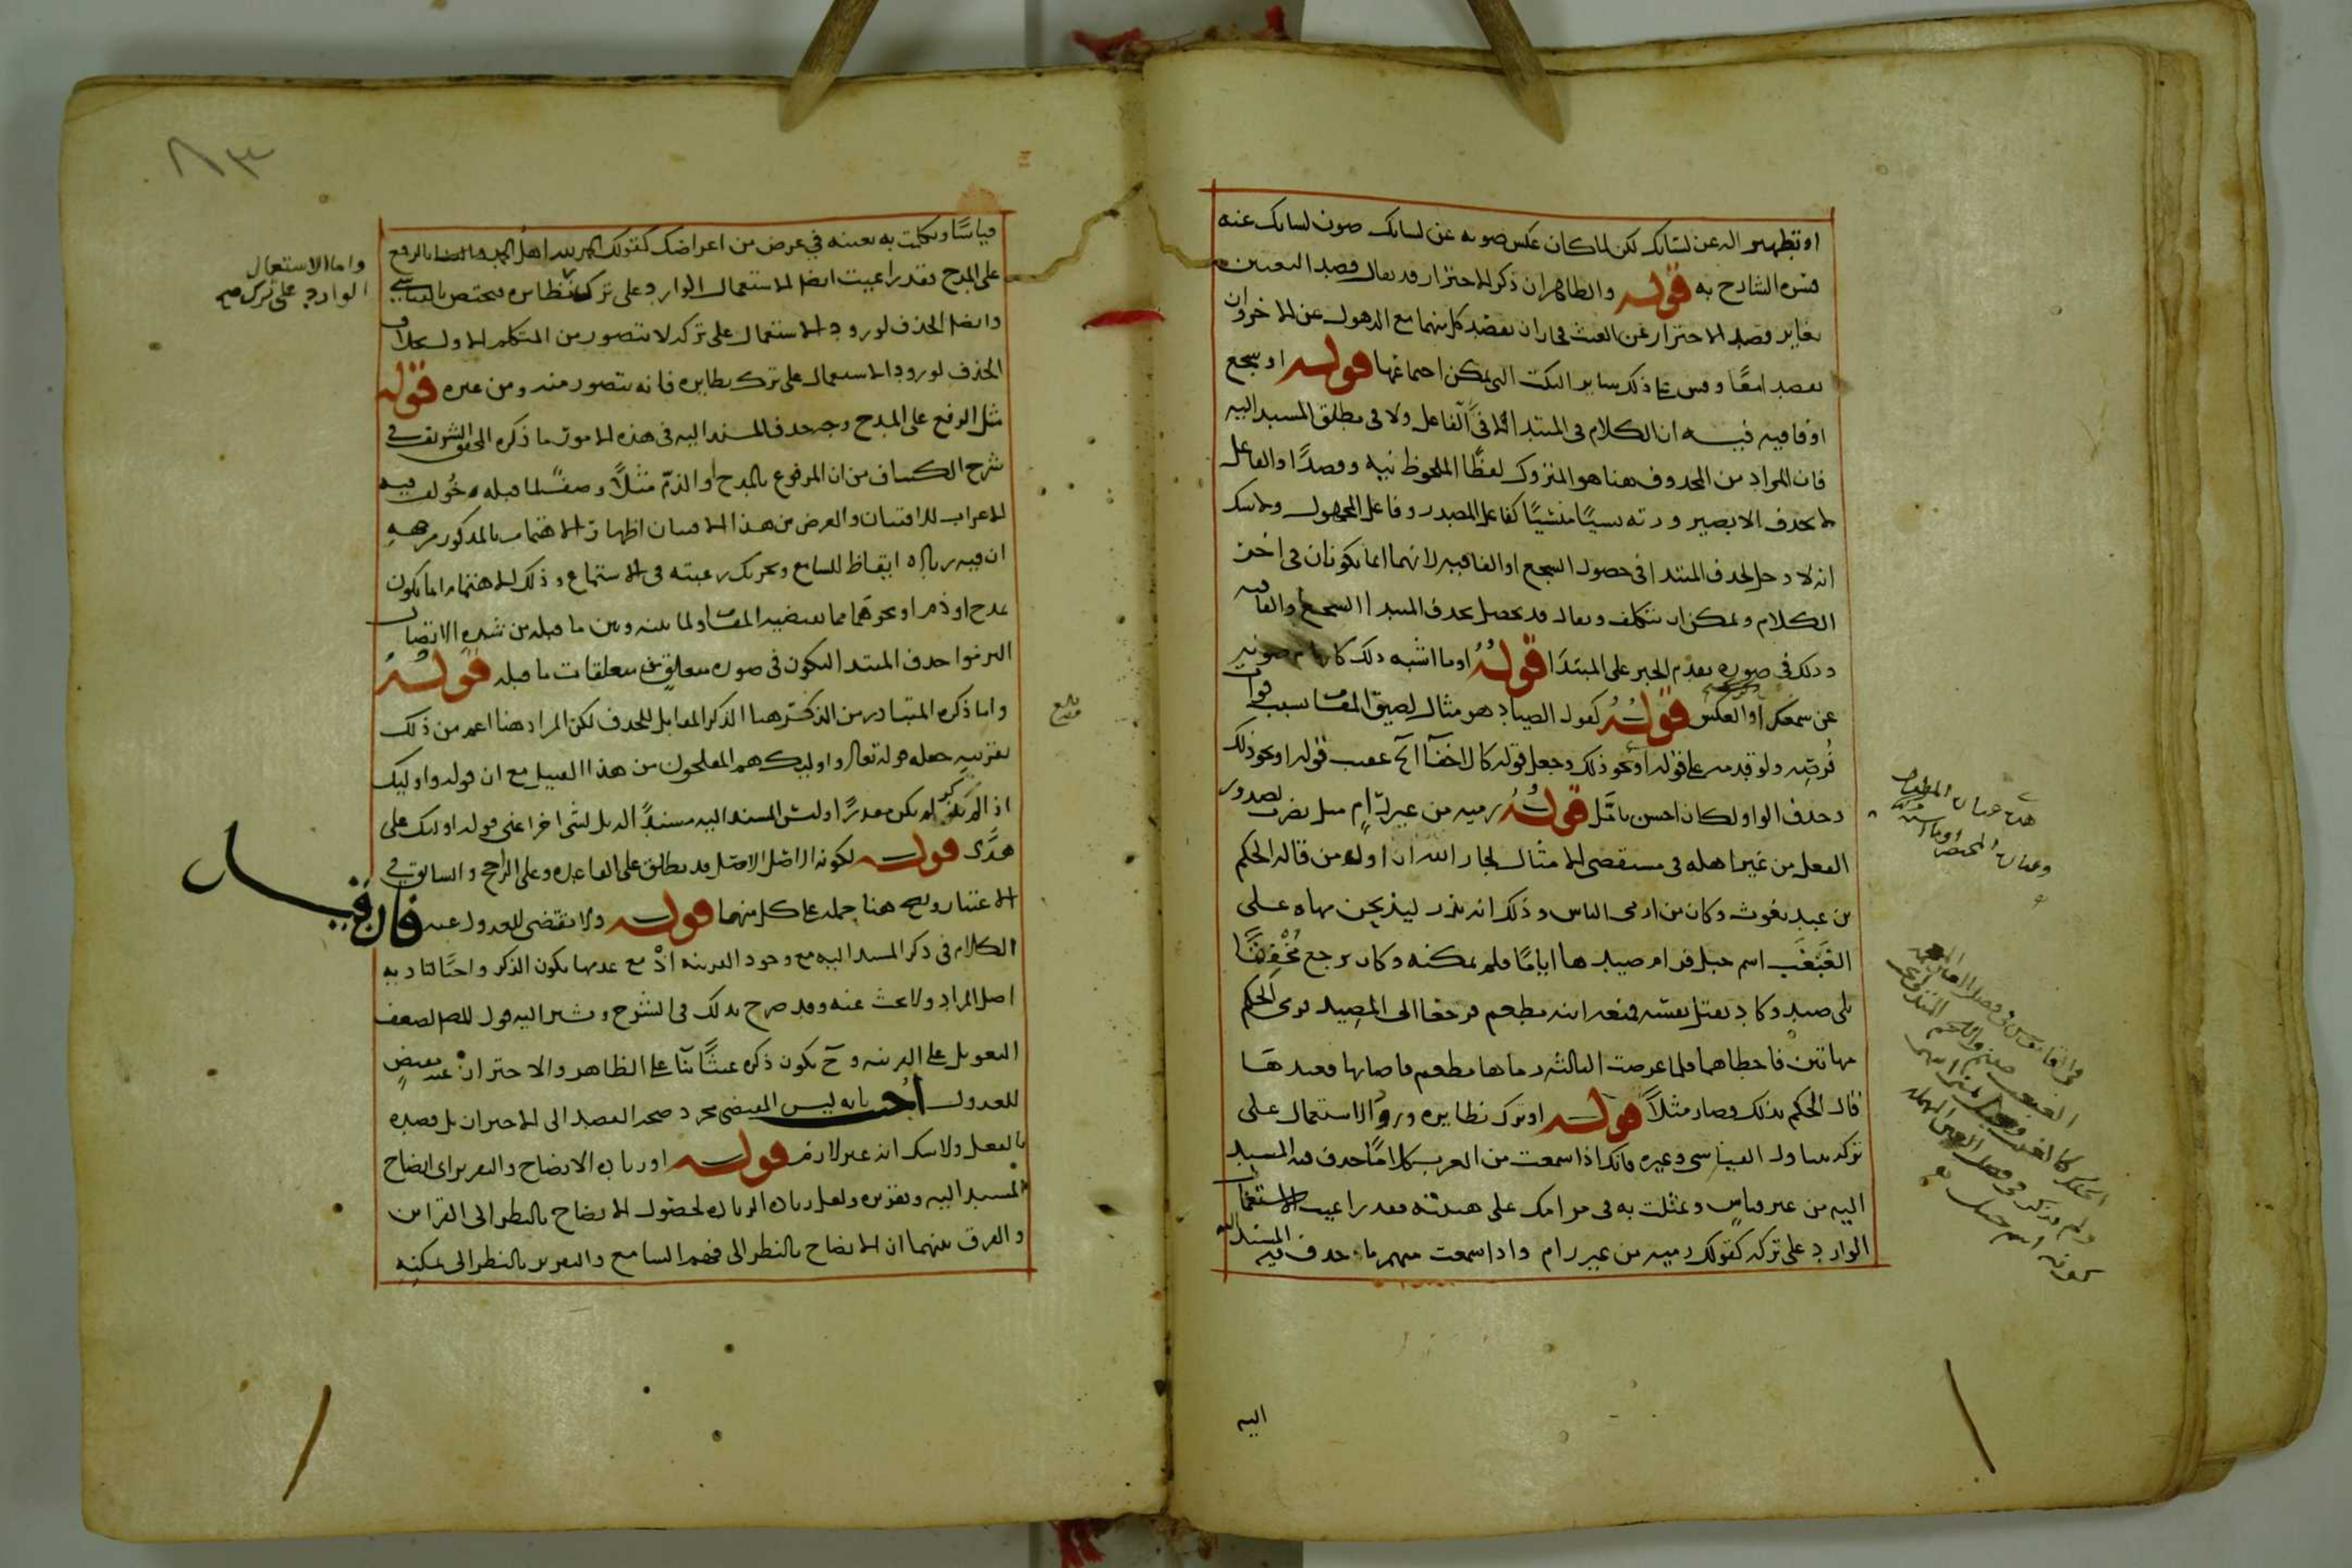 او تطهير اله عن لسانك لكن لما كان عكس صونه عن لسانك صون لسانك عنه
فسره الشارح به قوله والظاهر ان ذكر الاحتراز قد يقال قصد التعيين
يغاير قصد الاحتراز عن العبث فجاز ان يقصد كل منهما مع الذهول عن الاخر وان
يقصدا معًا وقس على ذلك ساير النكت التى يمكن اجتماعها قوله او سجع
او قافيه فيه ان الكلام فى المبتدا لا فى الفاعل ولا فى مطلق المسند اليه
فان المراد من المحذوف هنا هو المتروك لفظًا الملحوظ نيه وقصدًا والفاعل
لا يحذف الا بصيرورته نسيًا منسيًا كفاعل المصدر وفاعل المجهول ولا شك
انه لا دخل لحذف المبتدا فى حصول السجع او القافيه لانهما انما يكونان فى اخر
الكلام ويمكن ان يتكلف ويقال قد يحصل بحذف المبتدا السجع والقافيه
وذلك فى صوره تقدم الخبر على المبتدا قوله او ما اشبه ذلك
عن سمعك او العكس قوله كقول الصياد هو مثال لضيق المقام بسبب فوات
فُرصه ولو قدمه على قوله او نحو ذلك وجعل قوله كالاخفآ الخ عقب قوله او نحو ذلك
وحذف الواو لكان احسن تامَّل قوله رميه من غير رامٍ مثل يضرب لصدور
الفعل من غير اهله فى مستقصى الامثال لجار الله ان اول من قاله الحكم
بن عبد يغوث وكان من ارمى الناس وذلك انه نذر ليذبحن مهاه على
الغَبْغَب اسم جبل فرام صيدها ايامًا فلم يمكنه وكان يرجع مُخْفِقًا
بلا صيد وكاد يقتل نفسه فمنعه ابنه مطعم فرجعا الى المصيد فرمى الحكم
مهاتين فاخطاهما فلما عرضت الثالثه رماها مطعم فاصابها فعندها
قال الحكم ذلك فصار مثلاً قوله او ترك نظايره ورود الاستعمال على
تركه يتناول القياسى وغيره فانك اذا سمعت من العرب كلامًا حذف فيه المسند
اليه من غير قياس وتمثلت به فى مرامك على هيئته فقد راعيت الاستعمال
الوارد على تركه كقولك رميه من غير رام واذا سمعت منهم ما حذف فيه المسند اليه
اليه
هذه عباره المطول
وعباره المختصر
فى القاموس فى فصل الغين
الغبغب صنم واللحم المتدلى تحت
الحنك كالغبب وجبل بمنى
ولم يذكر فى فصل العين المهمله
كونه اسم جبل
٨٣
قياسًا وتكلمت به بعينه في غرض من اغراضك كقولك الحمد لله اهل الحمد بالرفع
على المدح فقد راعيت ايضا الاستعمال الوارد على ترك نظايره فيختص بالقياسي
وايضا الحذف لورود الاستعمال على تركه لا يتصور من المتكلم الاول بخلاف
الحذف لورود الاستعمال على ترك نظايره فانه يتصور منه ومن غيره قوله
مثل الرفع على المدح وجه حذف المسند اليه فى هذه الامور ما ذكره المحقق الشريف في
شرح الكشاف من ان المرفوع بالمدح او الذمّ مثلاً وصف لما قبله خُولف فيه
الاعراب للافتنان والغرض من هذا الافتنان اظهار الاهتمام بالمذكور من جهه
ان فيه زياده ايقاظ للسامع وتحريك رغبته فى الاستماع وذلك الاهتمام انما يكون
بمدح او ذم او نحوهما مما يقتضيه المقام ولما بينه وبين ما قبله من شده الاتصال
التزموا حذف المبتدا ليكون فى صوره متعلقٍ من متعلقات ما قبله قوله
واما ذكره المتبادر من الذكر هنا الذكر المقابل للحذف لكن المراد هنا اعم من ذلك
بقرينه جعله قوله تعالى واوليك هم المفلحون من هذا القبيل مع ان قوله واوليك
اذا لم يذكر لم يكن مقدرًا وليس المسند اليه مسندًا اليه بل لشى اخر اعنى قوله اوليك على
هدًى قوله لكونه الاصل الاصل قد يطلق على القاعده وعلى الراجح والسابق في
الاعتبار ويصح هنا حمله على كل منهما قوله ولا مقتضى للعدول عنه فان قيل
الكلام فى ذكر المسند اليه مع وجود القرينه اذْ مع عدمها يكون الذكر واجبًا لتاديه
اصل المراد ولا بحث عنه وقد صرح بذلك فى الشرح ويشير اليه قول المص لضعف
التعويل على القرينه وحٓ يكون ذكره عبثًا بنآ على الظاهر والاحتراز عنه مقتضٍ
للعدول اجيب بانه ليس المقتضى مجرد صحه القصد الى الاحتراز بل قصده
بالفعل ولا شك انه غير لازم قوله او زياده الايضاح والتقرير اى ايضاح
المسند اليه وتقريره ولعل زياده الزياده لحصول الايضاح بالنظر الى القراين
والفرق بينهما ان الايضاح بالنظر الى فهم السامع والتقرير بالنظر الى تمكينه
واما الاستعمال
الوارد على ترك صح